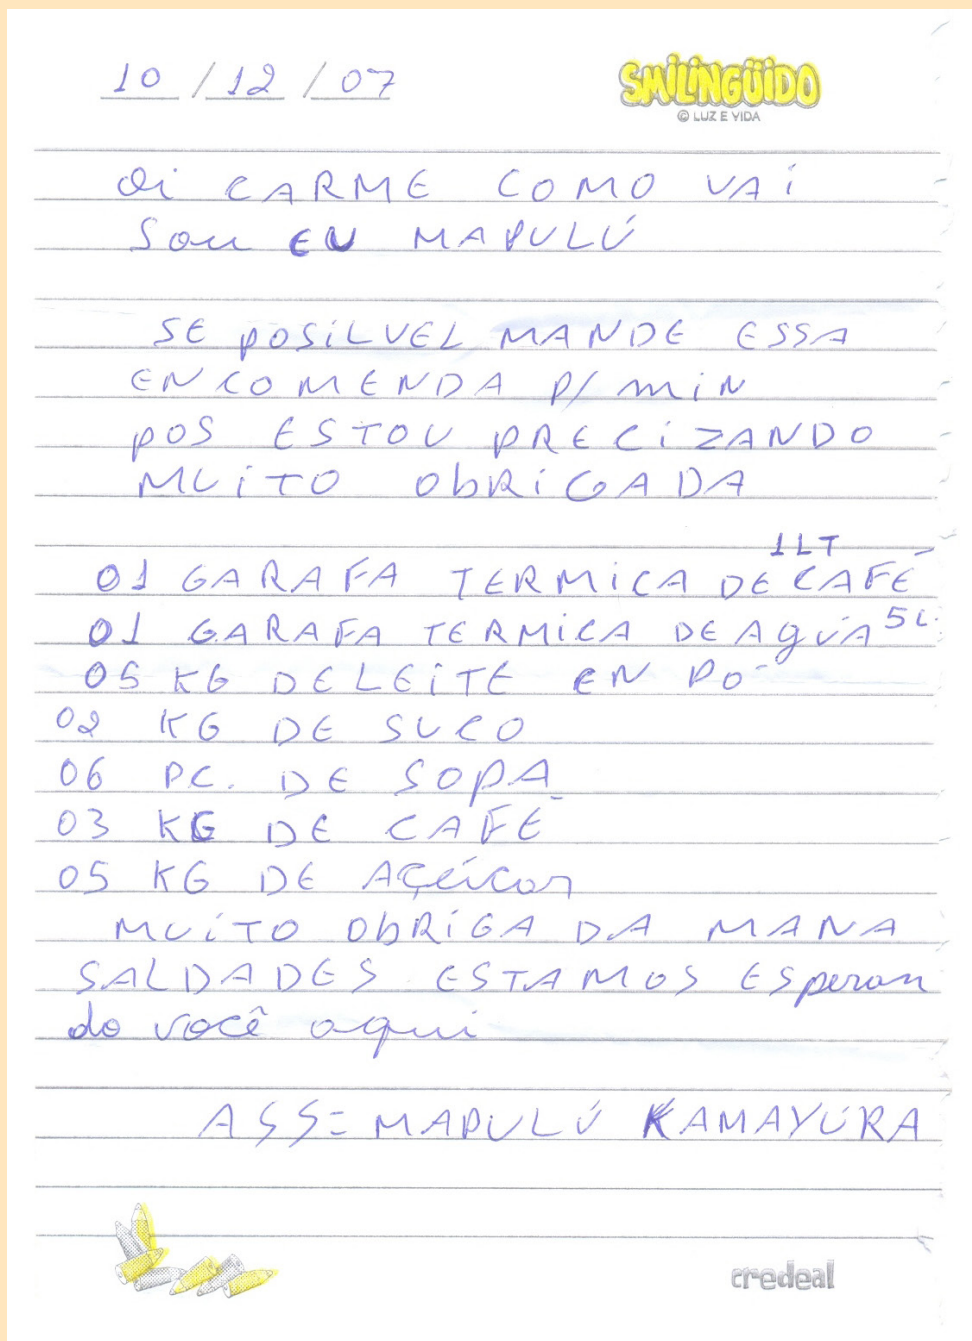 10/12/07
SMILINGÜIDO
© LUZ E VIDA
Oi CARME COMO VAi
Sou EU MAPULÚ
SE POSiLVEL MANDE ESSA
ENCOMENDA P/ MiN
POS ESTOU PRECiZANDO
MUiTO ObRiGADA
1LT
01 GARAFA TERMiCA DE CAFÉ
01 GARAFA TERMiCA DE AgUA 5L.
05 KG DE LEiTE EN PÓ
02 KG DE SUCO
06 PC. DE SOPA
03 KG DE CAFÉ
05 KG DE AÇúcar
MUiTO ObRiGADA MANA
SALDADES ESTAMOS ESperan
do você aqui
ASS= MAPULÚ KAMAYURA
credeal